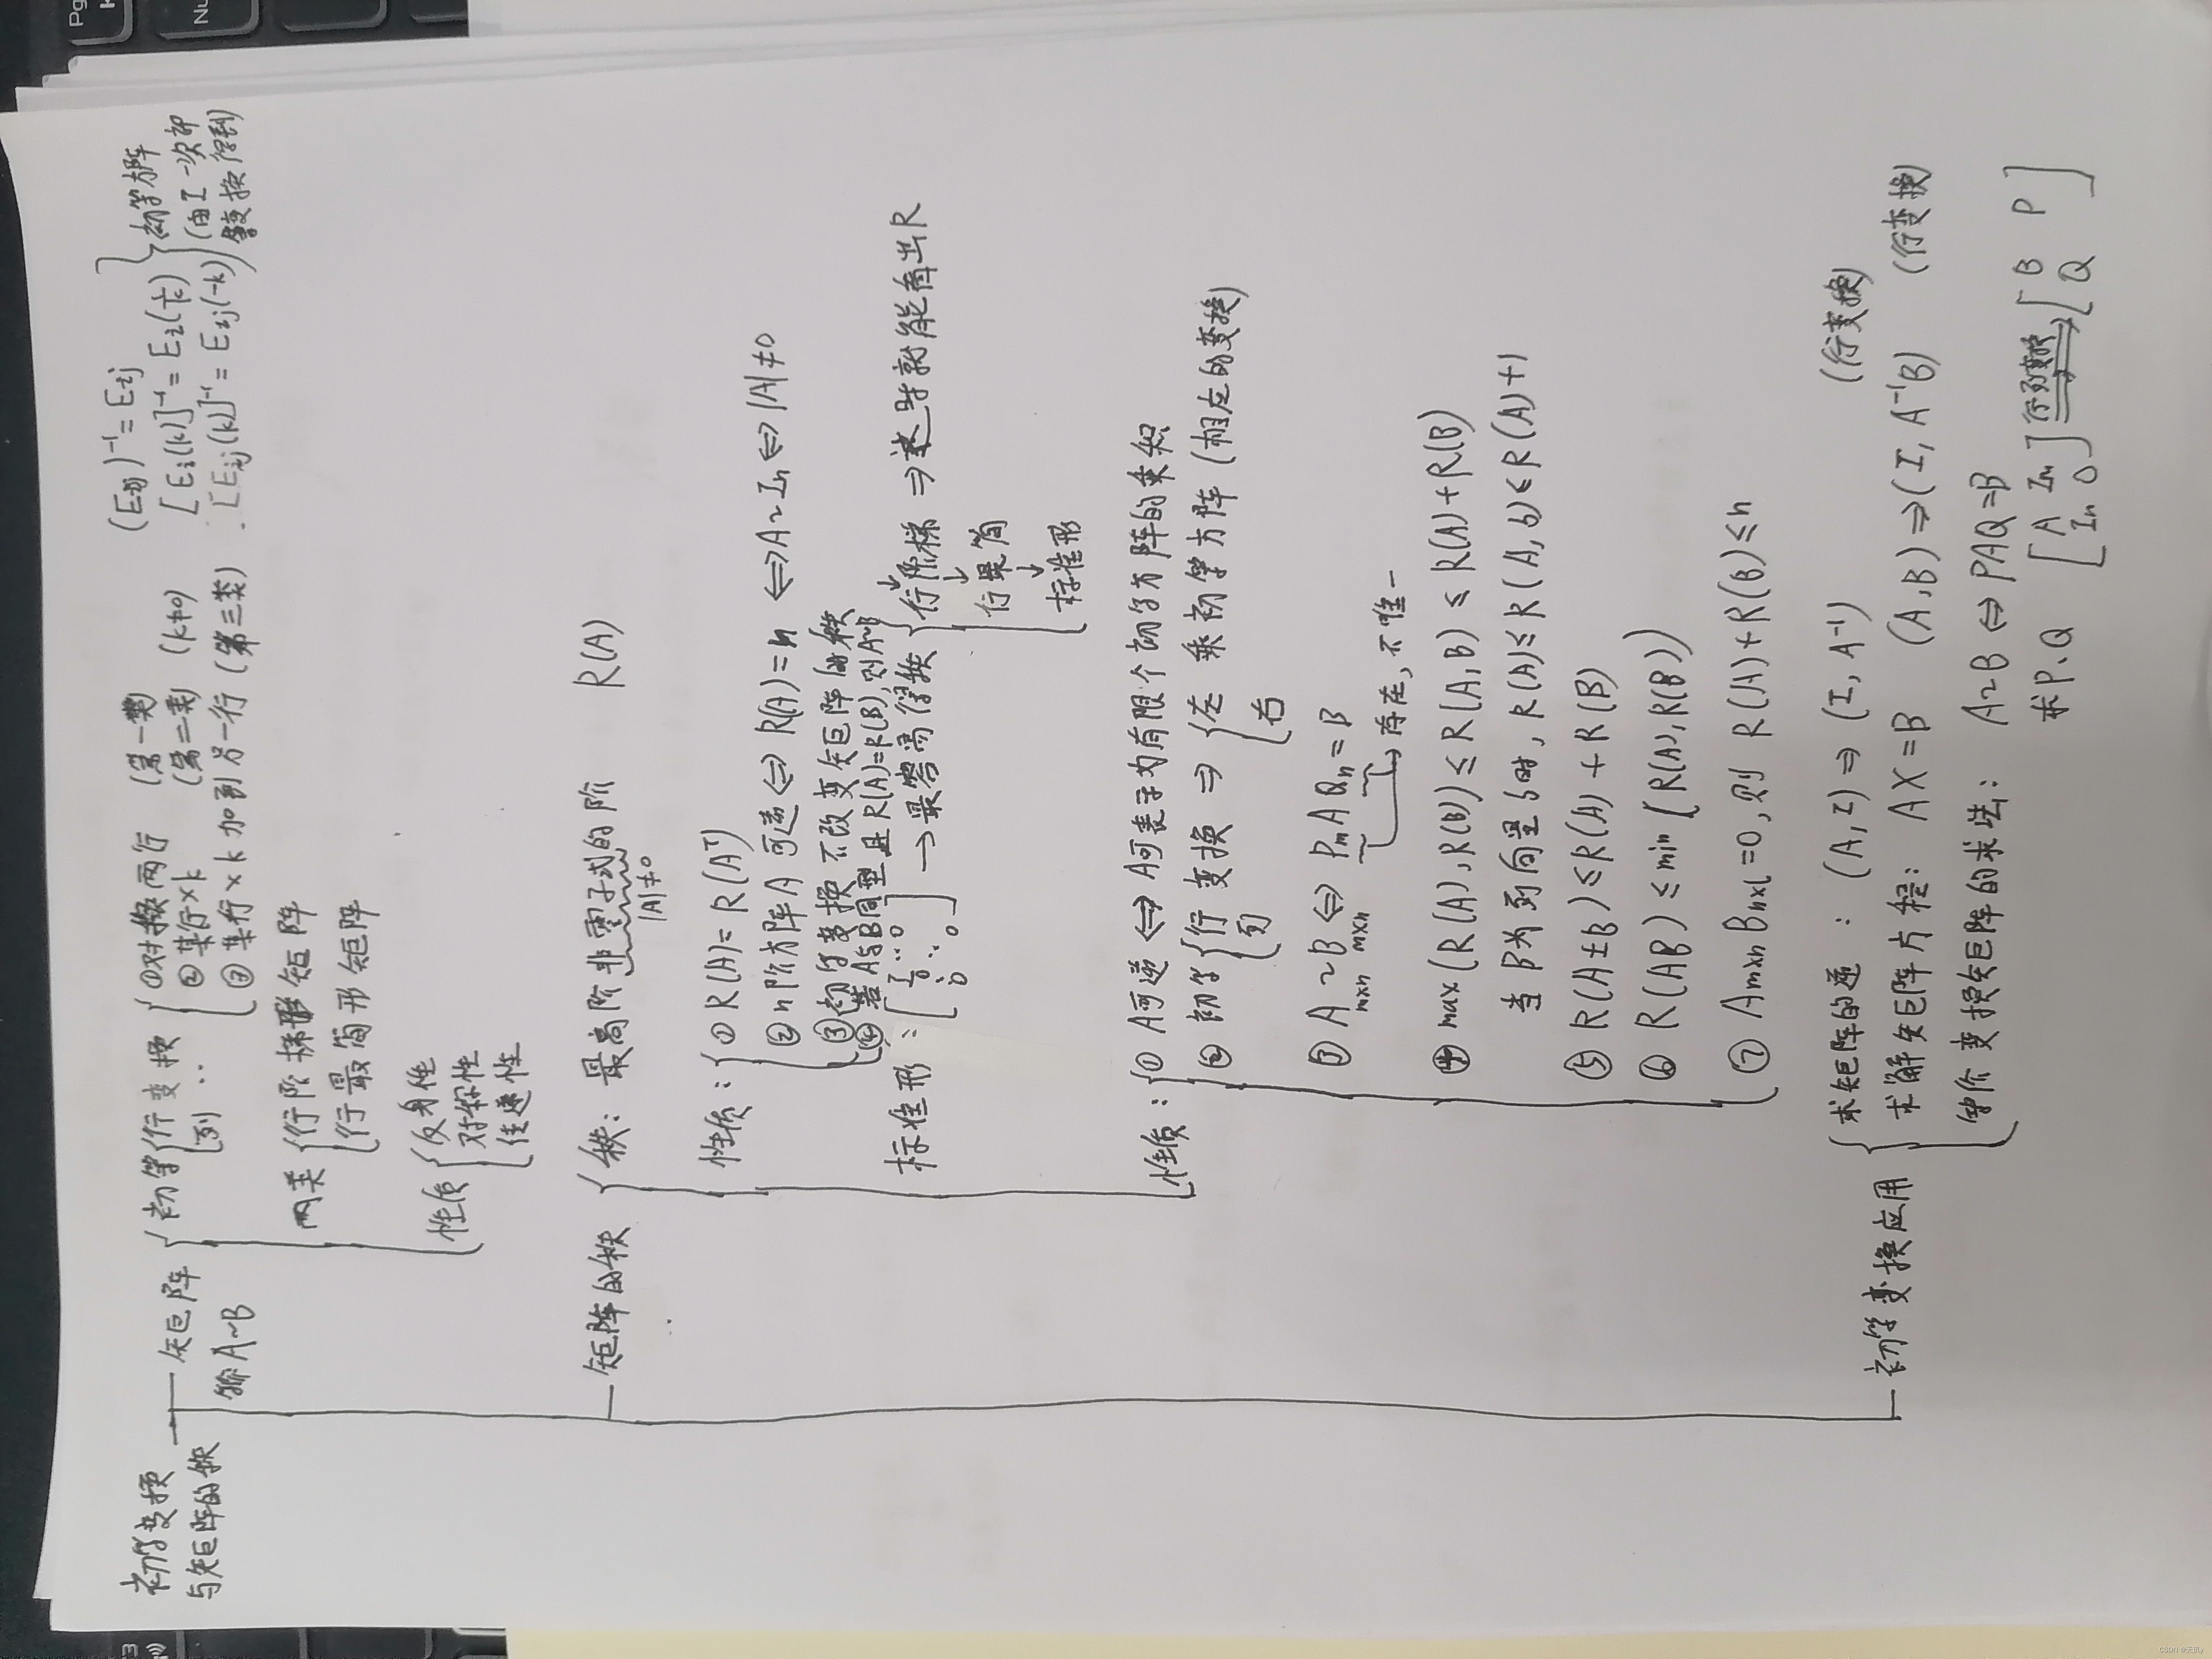 初等变换
与矩阵的秩
矩阵
A~B
初等
行变换
列 ··
①对换两行 (第一类)
②某行×k (第二类) (k≠0)
③某行×k加到另一行 (第三类)
(Eij)⁻¹=Eij
[Ei(k)]⁻¹=Ei(1/k)
[Eij(k)]⁻¹=Eij(-k)
初等方阵
(由I一次初
等变换得到)
两类
行阶梯形矩阵
行最简形矩阵
性质
反身性
对称性
传递性
矩阵的秩
秩：最高阶非零子式的阶 R(A)
|A|≠0
性质：
①R(A)=R(Aᵀ)
②n阶方阵A可逆⇔R(A)=n ⇔A~In⇔|A|≠0
③初等变换不改变矩阵的秩
④若A与B同型且R(A)=R(B),则A~B
标准形：
[I 0 ··0
0 ··0]
→最零高得秩
行阶梯 ⇒这时就能看出R
↓
行最简
↓
标准形
性质：
①A可逆⇔A可表示为有限个初等方阵的乘积
②初等{行 列 变换 ⇒ {左 右 乘初等方阵 (相应的变换)
③A~B⇔PmAQn=B
m×n m×n
→存在,不唯一
④max(R(A),R(B))≤R(A,B)≤R(A)+R(B)
当B为列向量b时,R(A)≤R(A,b)≤R(A)+1
⑤R(A±B)≤R(A)+R(B)
⑥R(AB)≤min(R(A),R(B))
⑦Am×nBn×l=0,则R(A)+R(B)≤n
初等变换应用
求矩阵的逆：(A,I)⇒(I,A⁻¹) (行变换)
求解矩阵方程：AX=B (A,B)⇒(I,A⁻¹B) (行变换)
等价变换矩阵的求法：A~B⇔PAQ=B
求P、Q [A Im
In 0] 行列变换 [B P
Q ]
Pg
Nu
F3
CSDN @天凯y